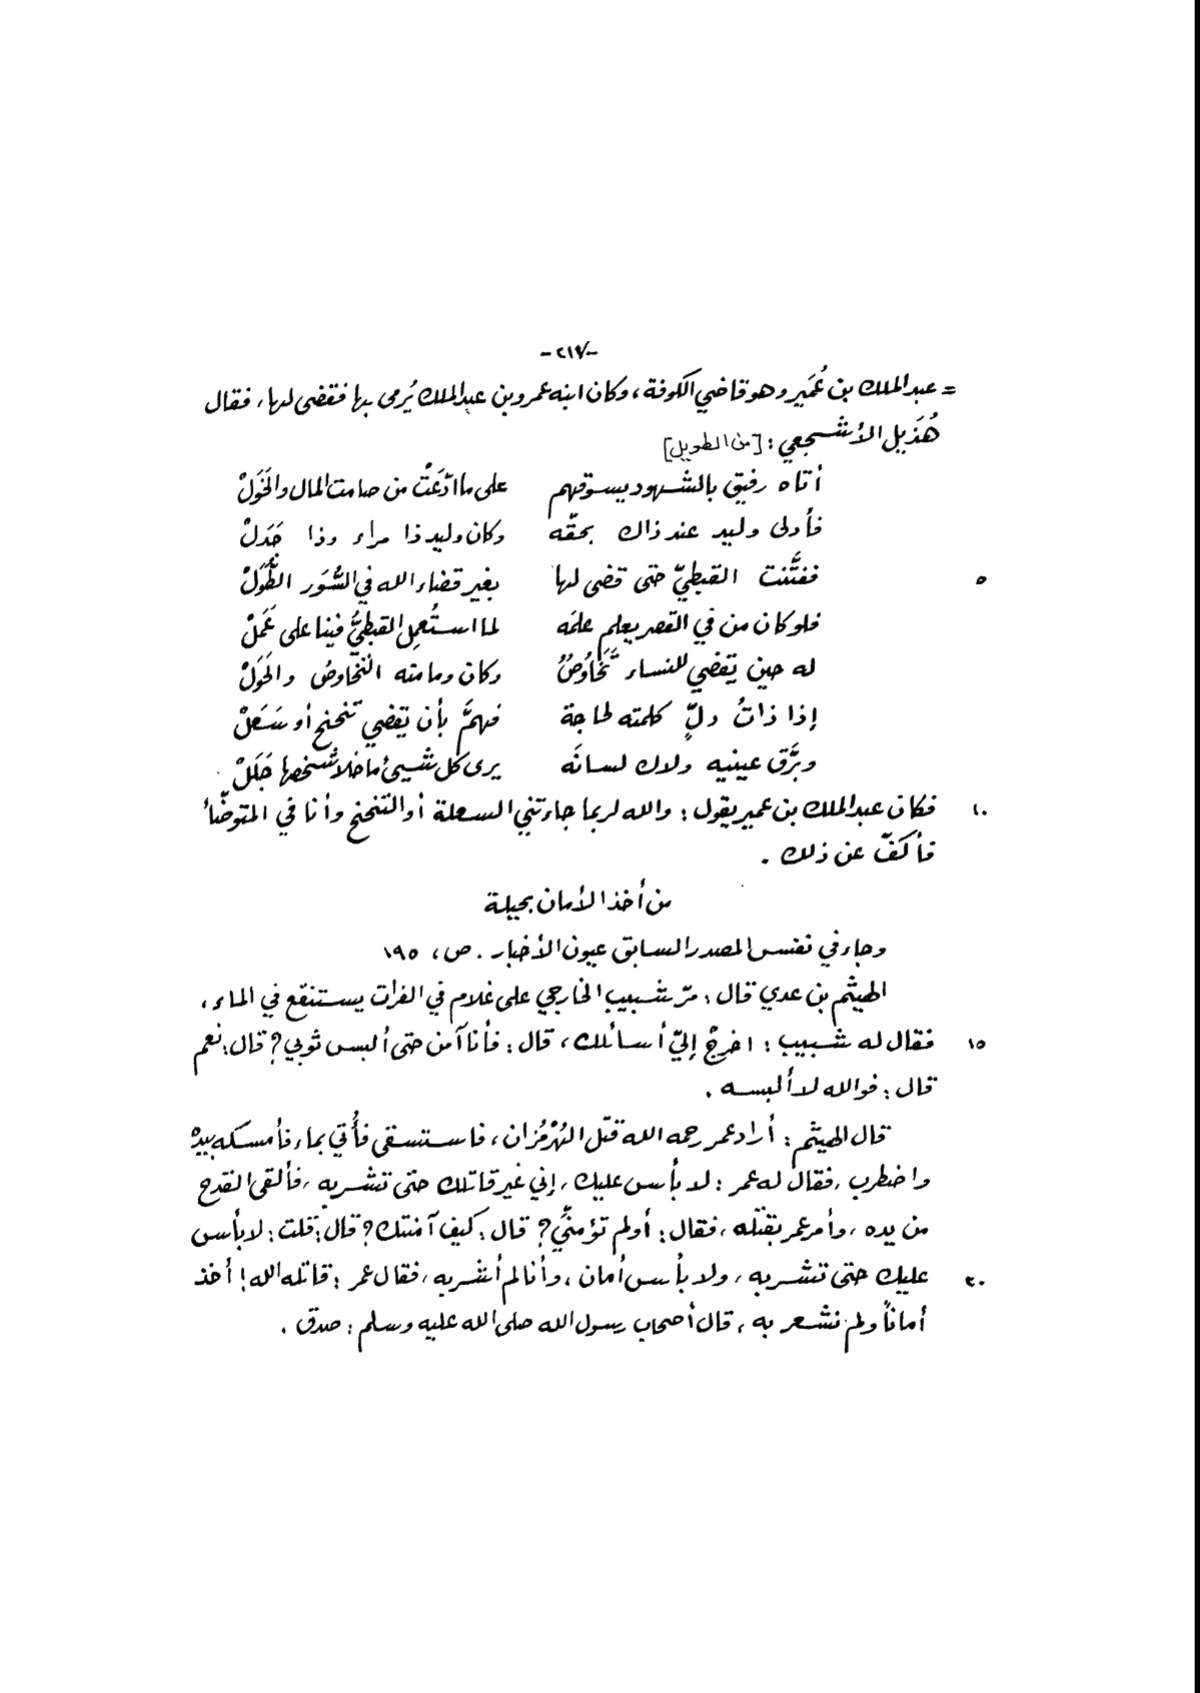 -٢١٧-
= عبد الملك بن عُمَير وهو قاضي الكوفة، وكان ابنه عمرو بن عبد الملك يُرمى بها فقضى لها، فقال
هُذَيل الأشجعي: [من الطويل]
أتاه رفيق بالشهود يسوقهم على ما ادّعَتْ من صامت المال والخَوَلْ
فأدلى وليد عند ذاك بحقّه وكان وليد ذا مراء وذا جَدَلْ
٥ ففتَّنت القبطيّ حتى قضى لها بغير قضاء الله في السُّوَر الطُّوَلْ
فلو كان من في القصر يعلم علمَه لما استُعمِل القبطيُّ فينا على عَمَلْ
له حين يقضي للنساء تَخَاوُصٌ وكان وما منه التخّاوصُ والحَوَلْ
إذا ذاتُ دلٍّ كلمته لحاجة فهمَّ بأن يقضي تنحنح أو سَعَلْ
وبرَّق عينيه ولاك لسانَه يرى كل شيئ ما خلا شخصها جَلَلْ
١٠ فكان عبد الملك بن عمير يقول: والله لربما جاءتني السعلة أو التنحنح وأنا في المتوضّأ
فأكفّ عن ذلك.
من أخذ الأمان بحيلة
وجاء في نفس المصدر السابق عيون الأخبار. ص، ١٩٥
الهيثم بن عدي قال: مرّ شبيب الخارجي على غلام في الفرات يستنقع في الماء،
١٥ فقال له شبيب: اخرجْ إليّ أسائلك، قال: فأنا آمن حتى ألبس ثوبي؟ قال: نعم
قال: فوالله لا ألبسه.
قال الهيثم: أراد عمر رحمه الله قتل الهُرْمُزان، فاستسقى فأُتي بماء فأمسكه بيدْ
واضطرب، فقال له عمر: لا بأس عليك، إني غير قاتلك حتى تشربه، فألقى القدح
من يده، وأمر عمر بقتله، فقال: أولم تؤمنّي؟ قال: كيف آمنتك؟ قال: قلت: لا بأس
٢٠ عليك حتى تشربه، ولا بأس أمان، وأنا لم أشربه، فقال عمر: قاتله الله! أخذ
أماناً ولم نشعر به، قال أصحاب رسول الله صلى الله عليه وسلم: صدق.